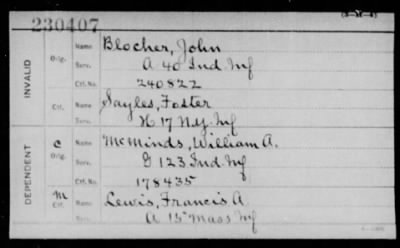 (3-M-4)
230407
INVALID
Orig. Name Blocher, John
Serv. A 40 Ind Inf
Ctf. No. 240822
Ctf. Name Sayles, Foster
Serv. H 17 N.Y. Inf
DEPENDENT
C Orig. Name McMinds, William A.
Serv. G 123 Ind Inf
Ctf. No. 178435
M Ctf. Name Lewis, Francis A.
A 15" Mass Inf